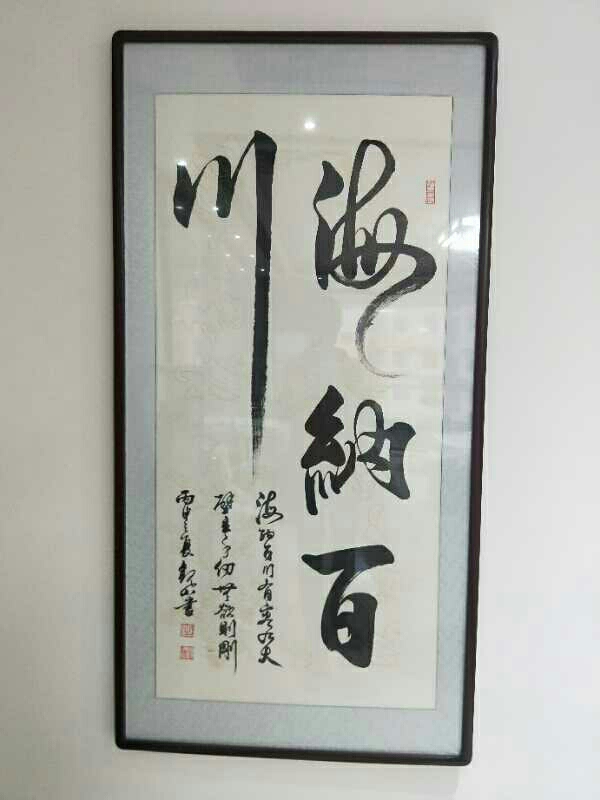 海納百
川
海納百川有容乃大
壁立千仞無欲則剛
丙申之夏 山書